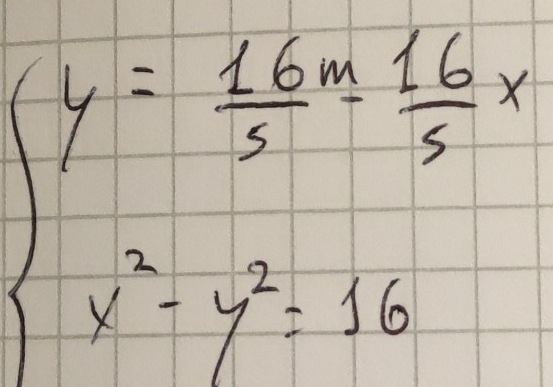 y = 16m/5 - 16/5 x
x² - y² = 16